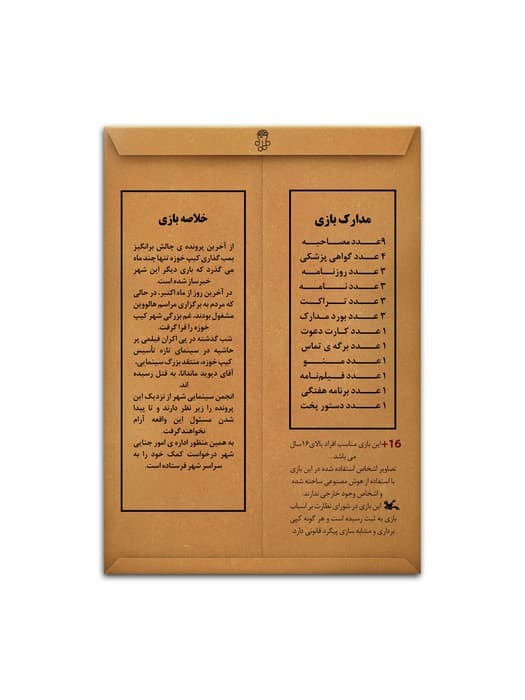 مدارک بازی
۹عدد مصاحبه
۴ عدد گواهی پزشکی
۳ عدد روزنامه
۳ عدد نامه
۳ عدد تراکت
۳ عدد بورد مدارک
۱ عدد کارت دعوت
۱ عدد برگه ی تماس
۱ عدد منو
۱ عدد فیلم‌نامه
۱ عدد برنامه هفتگی
۱ عدد دستور پخت
+16 این بازی مناسب افراد بالای ۱۶ سال
می باشد.
تصاویر اشخاص استفاده شده در این بازی
با استفاده از هوش مصنوعی ساخته شده
و اشخاص وجود خارجی ندارند.
این بازی در شورای نظارت بر اسباب
بازی به ثبت رسیده است و هر گونه کپی
برداری و مشابه سازی پیگرد قانونی دارد.
خلاصه بازی
از آخرین پرونده ی چالش برانگیز
بمب گذاری کیپ خوزه تنها چند ماه
می گذرد که باری دیگر این شهر
خبرساز شده است.
در آخرین روز از ماه اکتبر، در حالی
که مردم به برگزاری مراسم هالووین
مشغول بودند، غم بزرگی شهر کیپ
خوزه را فرا گرفت.
شب گذشته در پی اکران فیلمی پر
حاشیه در سینمای تازه تأسیس
کیپ خوزه، منتقد بزرگ سینمایی،
آقای دیوید ماندانا، به قتل رسیده
اند.
انجمن سینمایی شهر از نزدیک این
پرونده را زیر نظر دارند و تا پیدا
شدن مسئول این واقعه آرام
نخواهند گرفت.
به همین منظور اداره ی امور جنایی
شهر درخواست کمک خود را به
سراسر شهر فرستاده است.